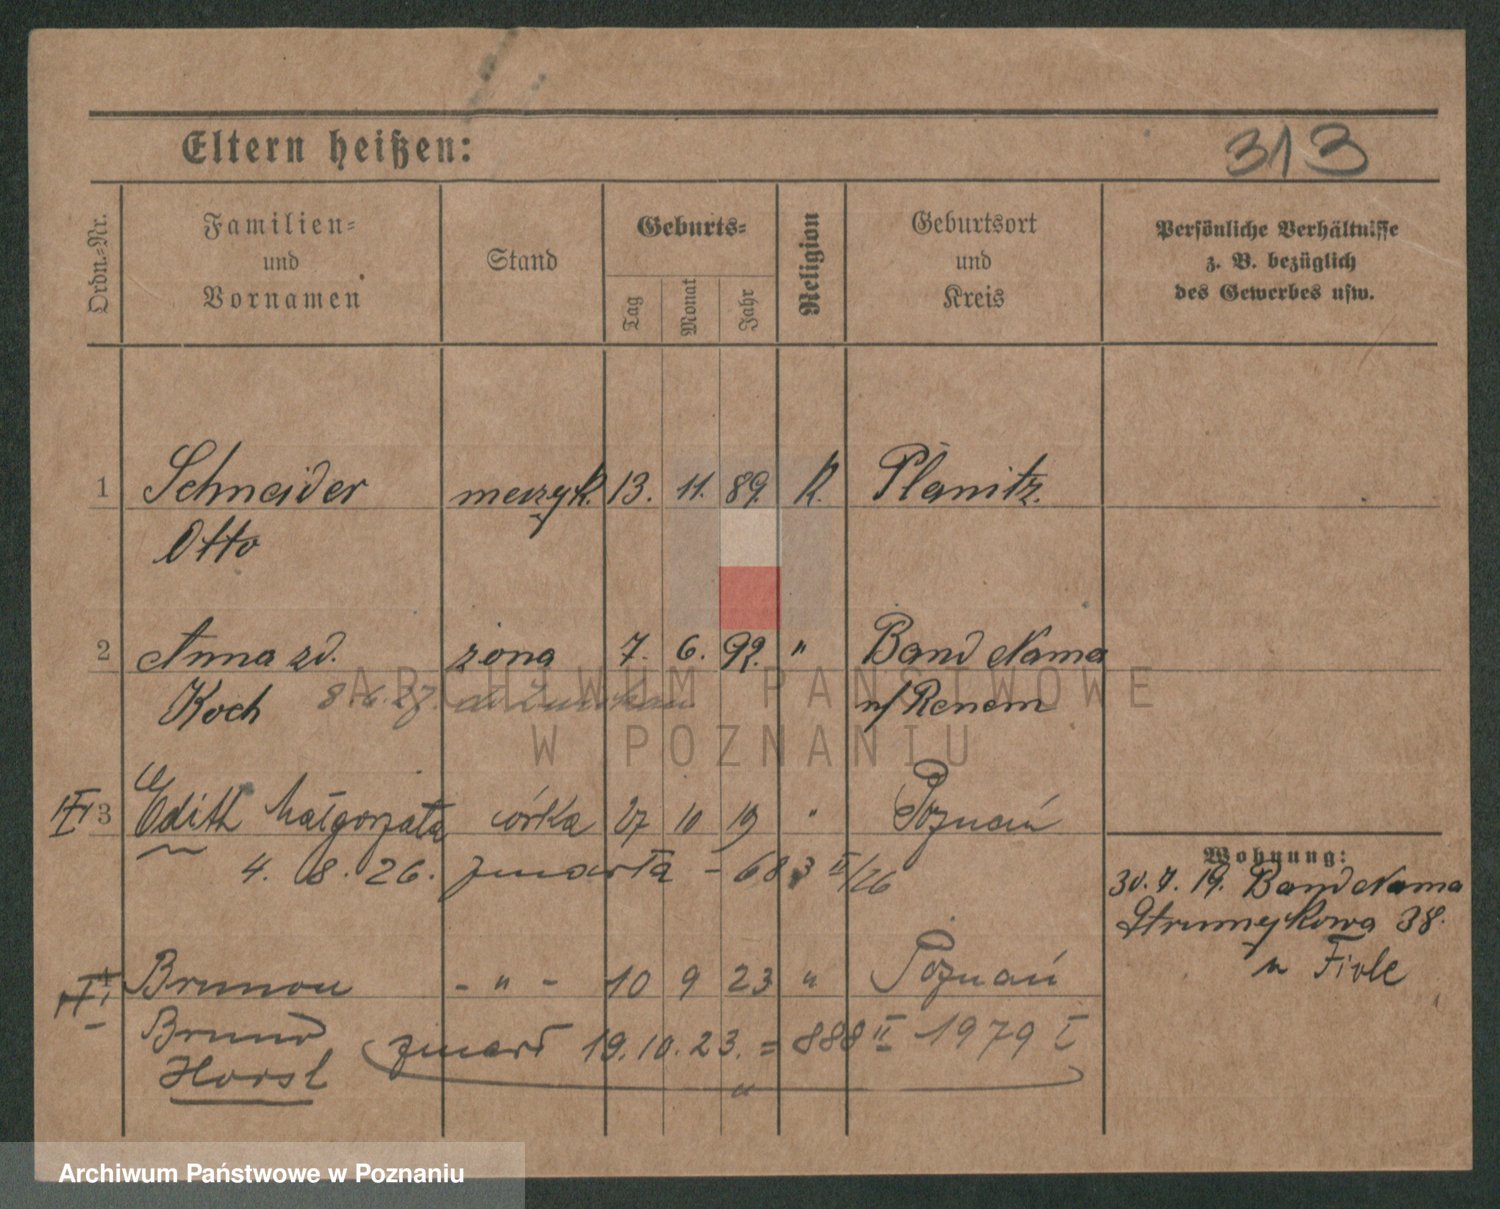 Eltern heißen:
313
Ordn.=Nr.
Familien=
und
Vornamen
Stand
Geburts=
Tag
Monat
Jahr
Religion
Geburtsort
und
Kreis
Persönliche Verhältnisse
z. B. bezüglich
des Gewerbes usw.
1 Schneider 13. 11. 89. K. Planitz.
Otto
2 Anna zd. żona 7. 6. 92. " Band Nama
Koch 8.6.27 n/ Renem
3 Edith Małgorzata córka 27 10 19 " Poznań
4. 8. 26. zmarła - 683 II/26
Wohnung:
30. 7. 19. Band Nama
Strumykowa 38.
u Fivle
4 Brunon - " - 10 9 23 " Poznań
Bruno zmarł 19.10.23. = 888 II 1979 I
Horst
ARCHIWUM PAŃSTWOWE
W POZNANIU
Archiwum Państwowe w Poznaniu